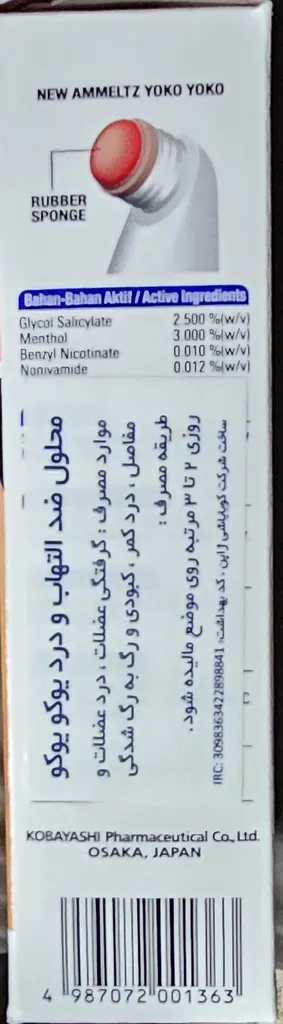 NEW AMMELTZ YOKO YOKO
RUBBER
SPONGE
Bahan-Bahan Aktif / Active Ingredients
Glycol Salicylate 2.500 %(w/v)
Menthol 3.000 %(w/v)
Benzyl Nicotinate 0.010 %(w/v)
Nonivamide 0.012 %(w/v)
محلول ضد التهاب و درد یوکو یوکو
موارد مصرف : گرفتگی عضلات ، درد عضلات و
مفاصل ، درد کمر ، کبودی و رگ به رگ شدگی
طریقه مصرف :
روزی ۲ تا ۳ مرتبه روی موضع مالیده شود .
ساخت شرکت کوبایاشی ژاپن ، کد بهداشت:
IRC: 3098363422898841
KOBAYASHI Pharmaceutical Co., Ltd.
OSAKA, JAPAN
4 987072 001363